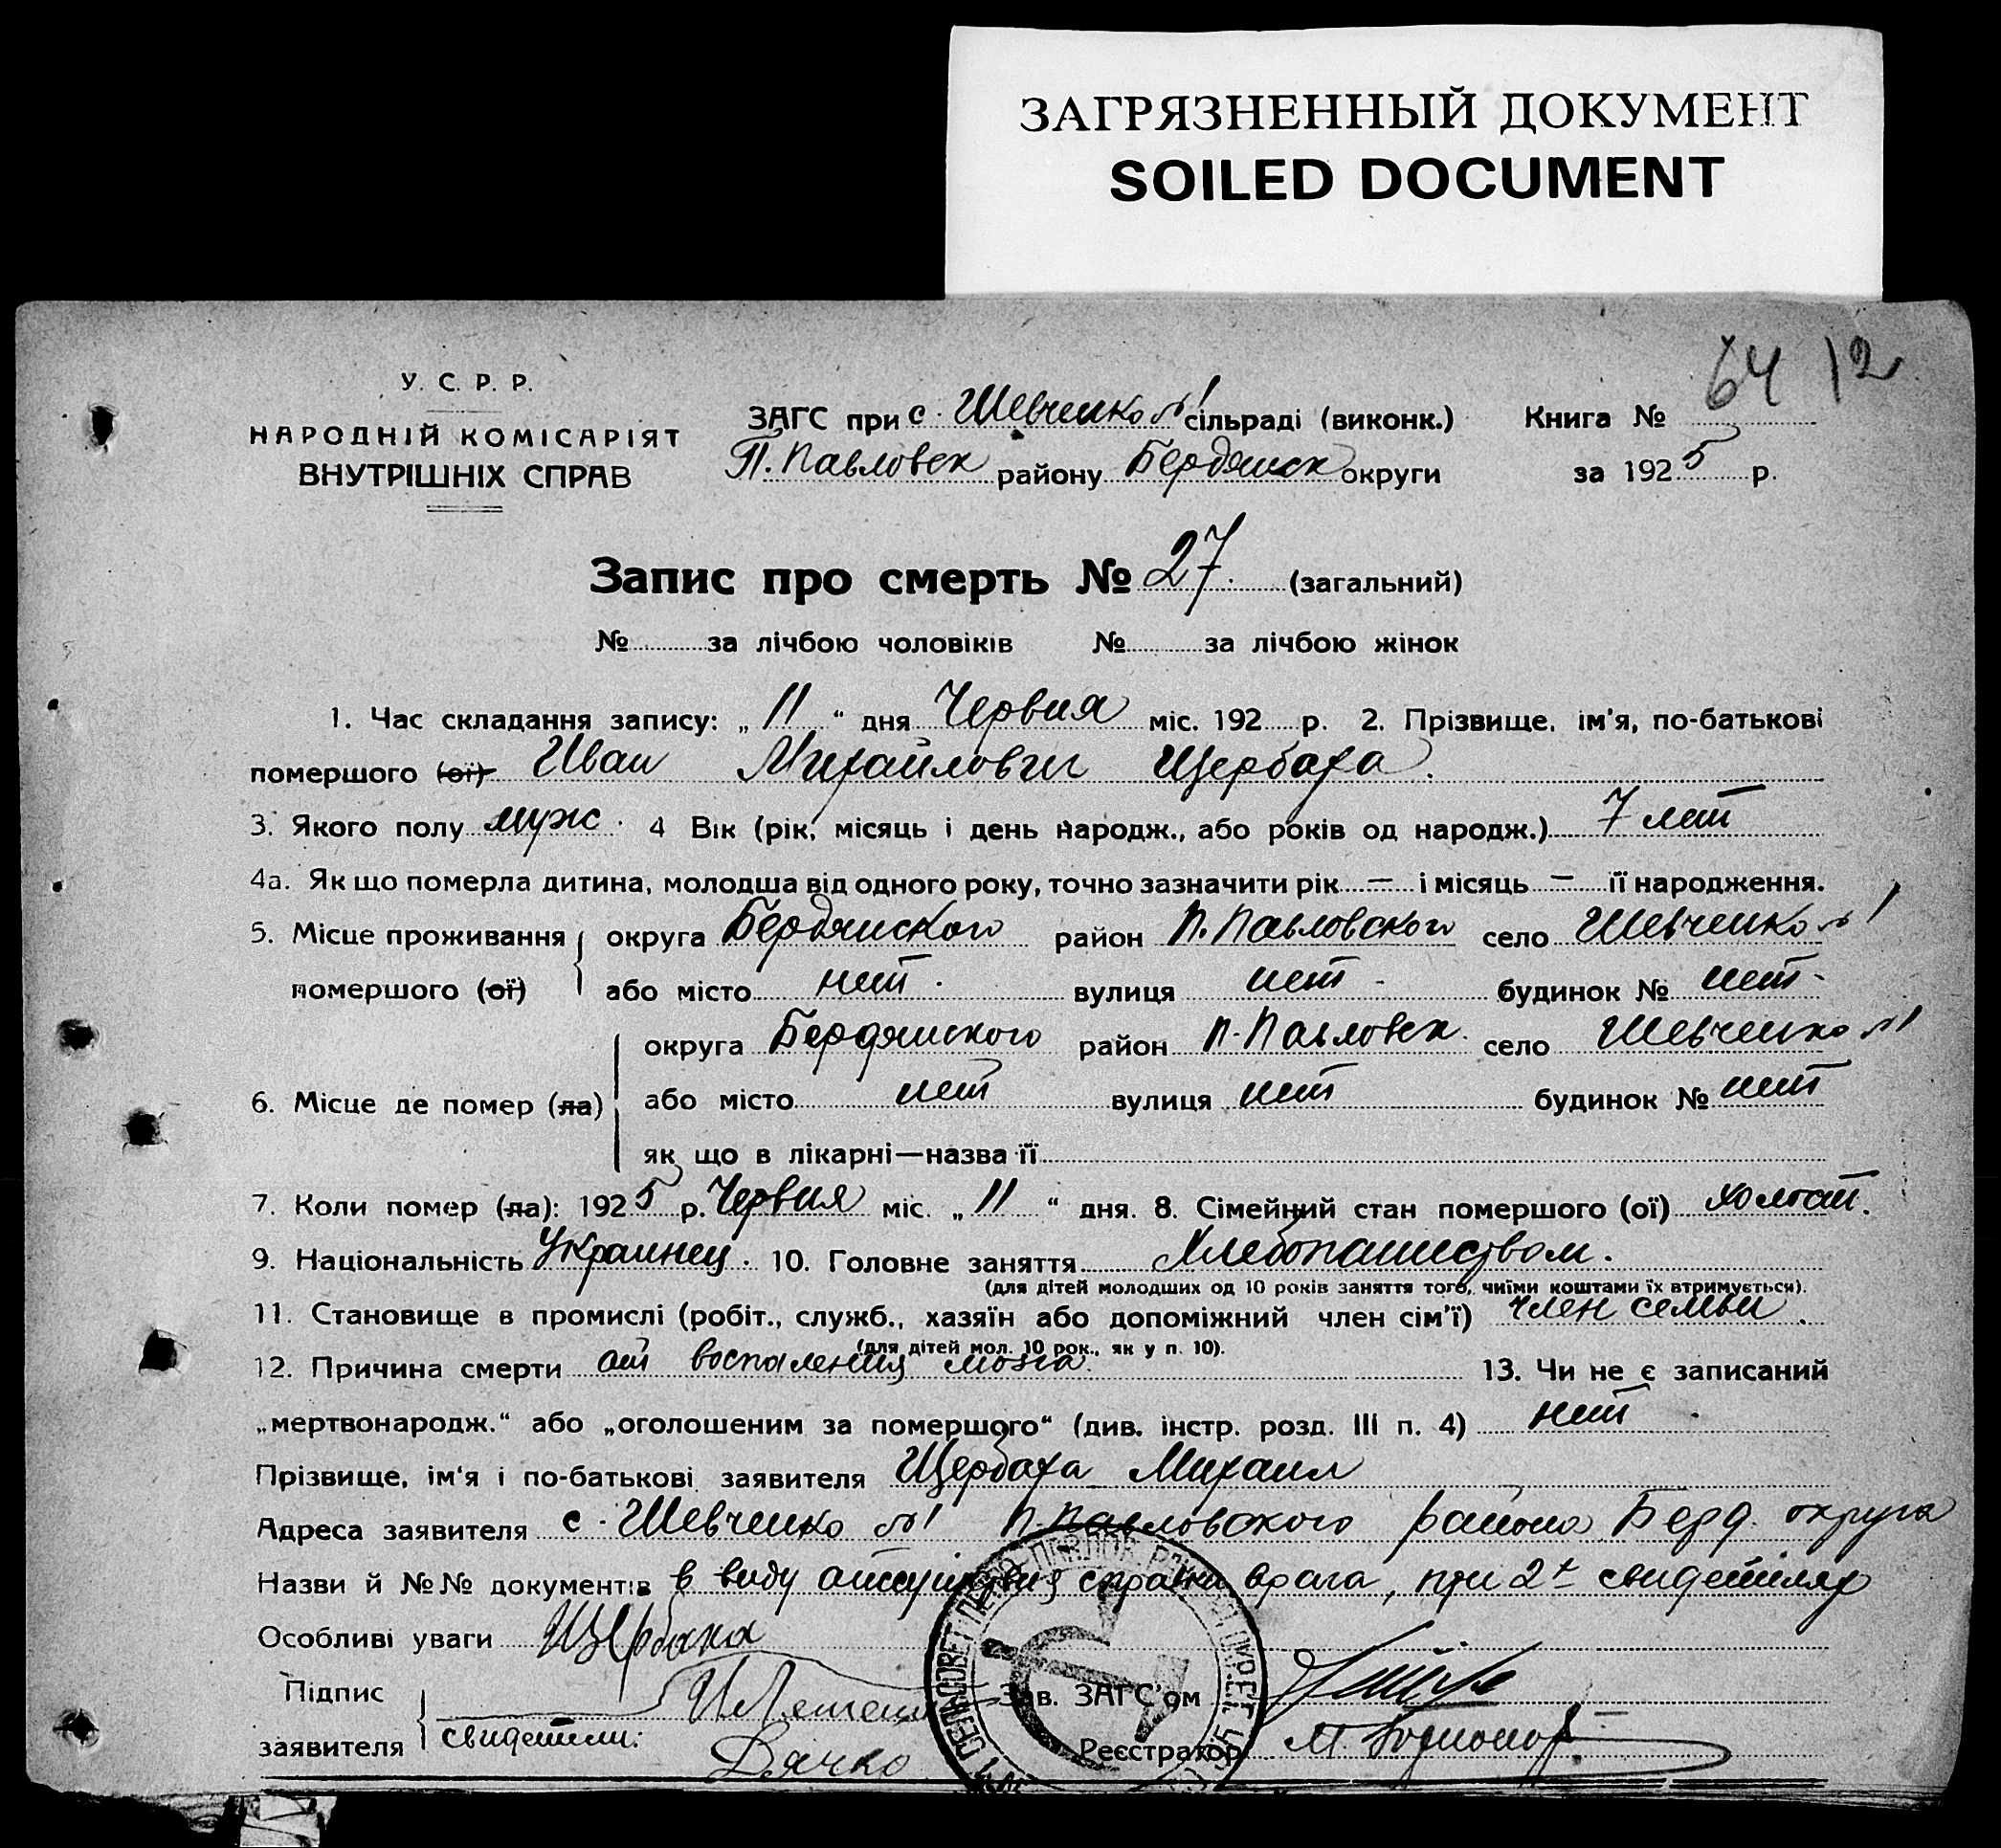 ЗАГРЯЗНЕННЫЙ ДОКУМЕНТ
SOILED DOCUMENT
64 12
У. С. Р. Р.
НАРОДНІЙ КОМІСАРІЯТ
ВНУТРІШНІХ СПРАВ
ЗАГС при с. Шевченко №1 сільраді (виконк.) Книга №
П. Павловск району Бердянск округи за 1925 р.
Запис про смерть № 27. (загальний)
№ за лічбою чоловіків № за лічбою жінок
1. Час складання запису: „ 11 “ дня Червня міс. 192 р. 2. Прізвище, ім'я, по-батькові
помершого (ої) Иван Михайлович Щербаха.
3. Якого полу муж. 4 Вік (рік, місяць і день народж., або років од народж.) 7 лет
4а. Як що померла дитина, молодша від одного року, точно зазначити рік — і місяць — її народження.
5. Місце проживання округа Бердянского район П. Павловского село Шевченко №1
помершого (ої) або місто нет. вулиця нет - будинок № нет-
округа Бердянского район П-Павловск. село Шевченко №1
6. Місце де помер (ла) або місто нет вулиця нет будинок № нет
як що в лікарні—назва її
7. Коли помер (ла): 1925 р. Червня міс. „ 11 “ дня. 8. Сімейний стан помершого (ої) холост.
9. Національність Украинец. 10. Головне заняття Хлебопашеством.
(для дітей молодших од 10 років заняття того, чиїми коштами їх втримується).
11. Становище в промислі (робіт., служб., хазяїн або допоміжний член сім'ї) член семьи.
(для дітей мол. 10 рок., як у п. 10).
12. Причина смерти от воспаления мозга. 13. Чи не є записаний
„мертвонародж.“ або „оголошеним за померщого“ (див. інстр. розд. III п. 4) нет.
Прізвище, ім'я і по-батькові заявителя Щербаха Михаил
Адреса заявителя с. Шевченко №1 П-Павловского района Берд. округа
Назви й №№ документів в виду отсуцтвия справки врача, при 2х свидетелях
Особливі уваги Щербака
Підпис
заявителя свидетели: Дячко
Зав. ЗАГС'ом
Реєстратор М.